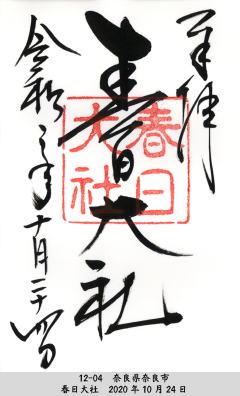 奉拝
春日大社
春日大社
令和二年十月二十四日
12-04 奈良県奈良市
春日大社 2020年10月24日